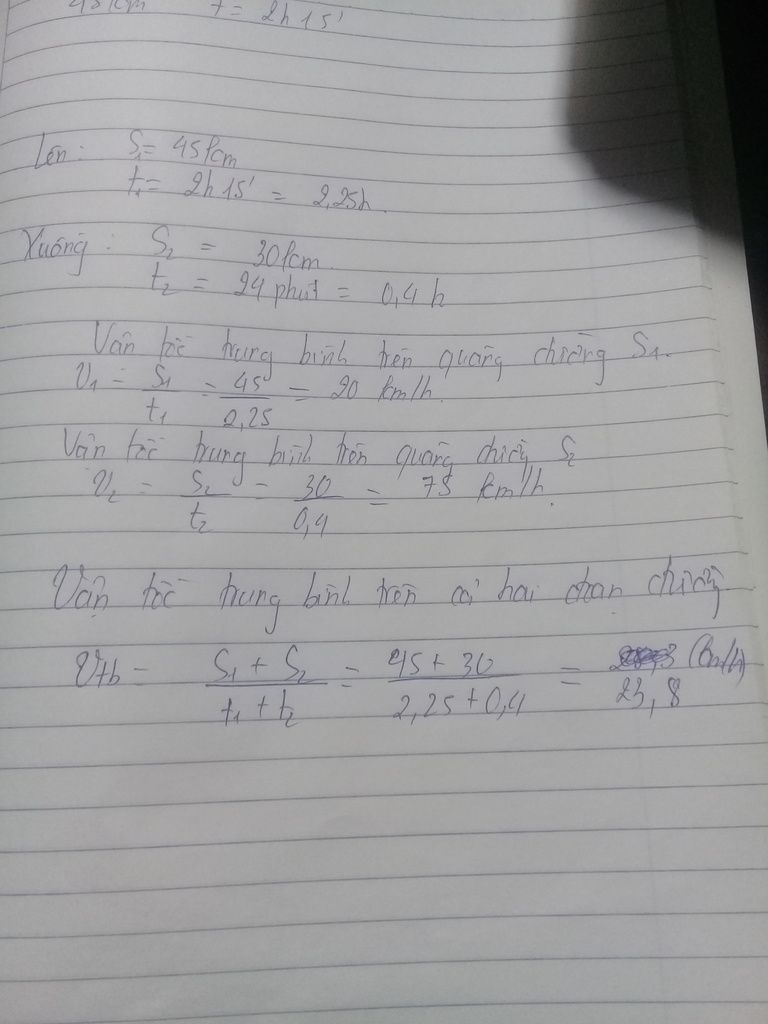 45km t = 2h15'
Lên: S₁= 45km
t₁= 2h15' = 2,25h.
Xuống: S₂ = 30km.
t₂ = 24 phút = 0,4 h
Vận tốc trung bình trên quãng đường S₁.
V₁ = S₁/t₁ = 45/2,25 = 20 km/h.
Vận tốc trung bình trên quãng đường S₂
V₂ = S₂/t₂ = 30/0,4 = 75 km/h.
Vận tốc trung bình trên cả hai đoạn đường
Vtb = S₁ + S₂/t₁ + t₂ = 45 + 30/2,25 + 0,4 = 23,8 (km/h)